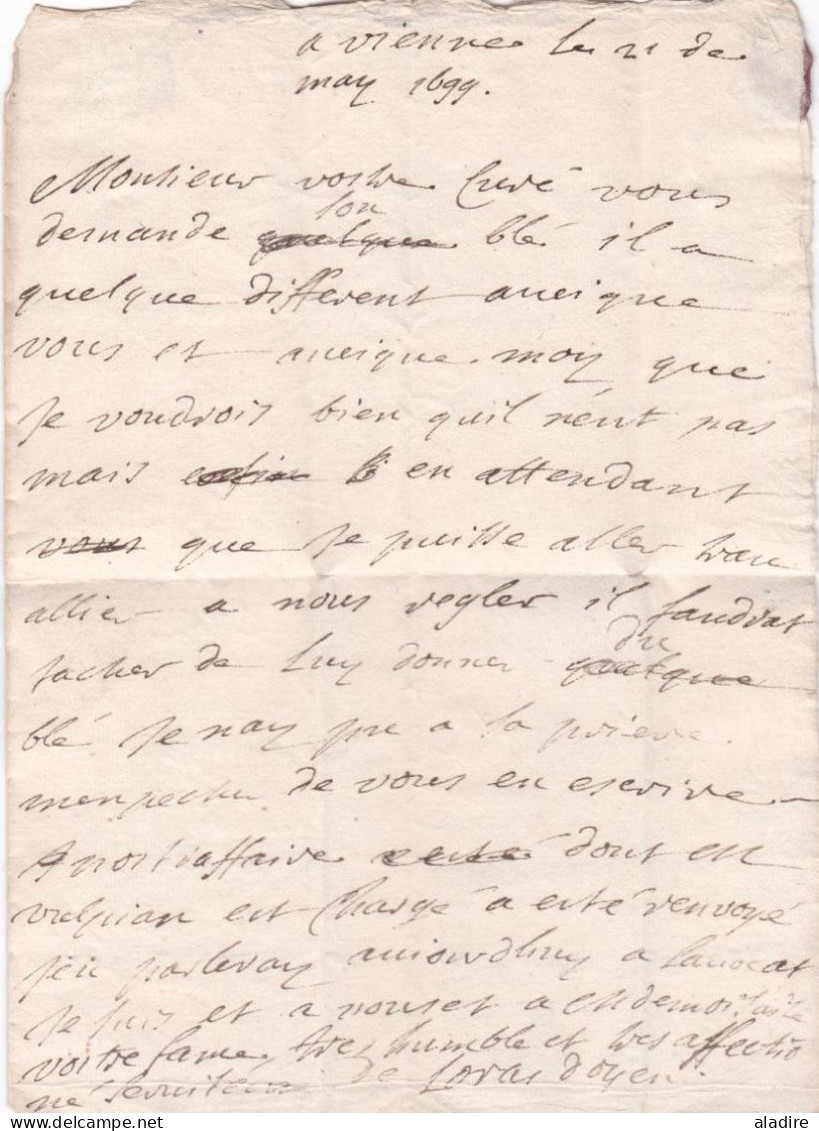 a vienne le 21 de
may 1699.
Monsieur vostre Curé vous
son
demande quelque blé il a
quelque different aueique
vous et aueique moy que
Je voudrois bien quil n'eut pas
mais en attendant
vous que Je puisse aller
allier a nous regler il faudrat
du
tacher de luy donner quelque
blé Je nay pu a sa priere
menpecher de vous en escrire
nostr affaire dont en
vulpian est chargé a esté renvoyé
J'en parleray auiourdhuy a lauocat
Je suis et a vous et a
vostre fame tres humble et tres affectio
né seruiteur de Loras doyen.
aladire